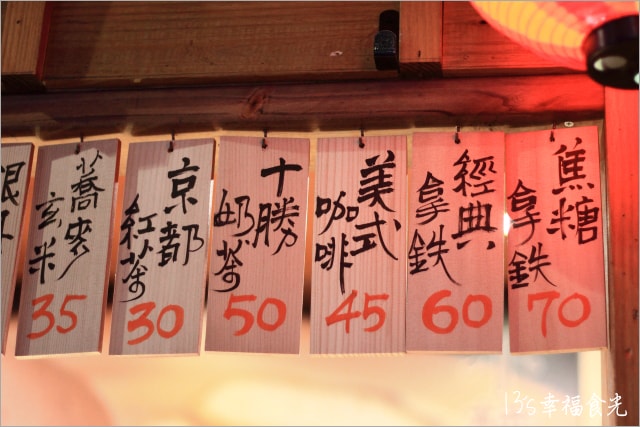 焦糖
拿鉄
70
經典
拿鉄
60
美式
咖啡
45
十勝
奶茶
50
京都
紅茶
30
蕎麥
玄米
35
13's幸福食光